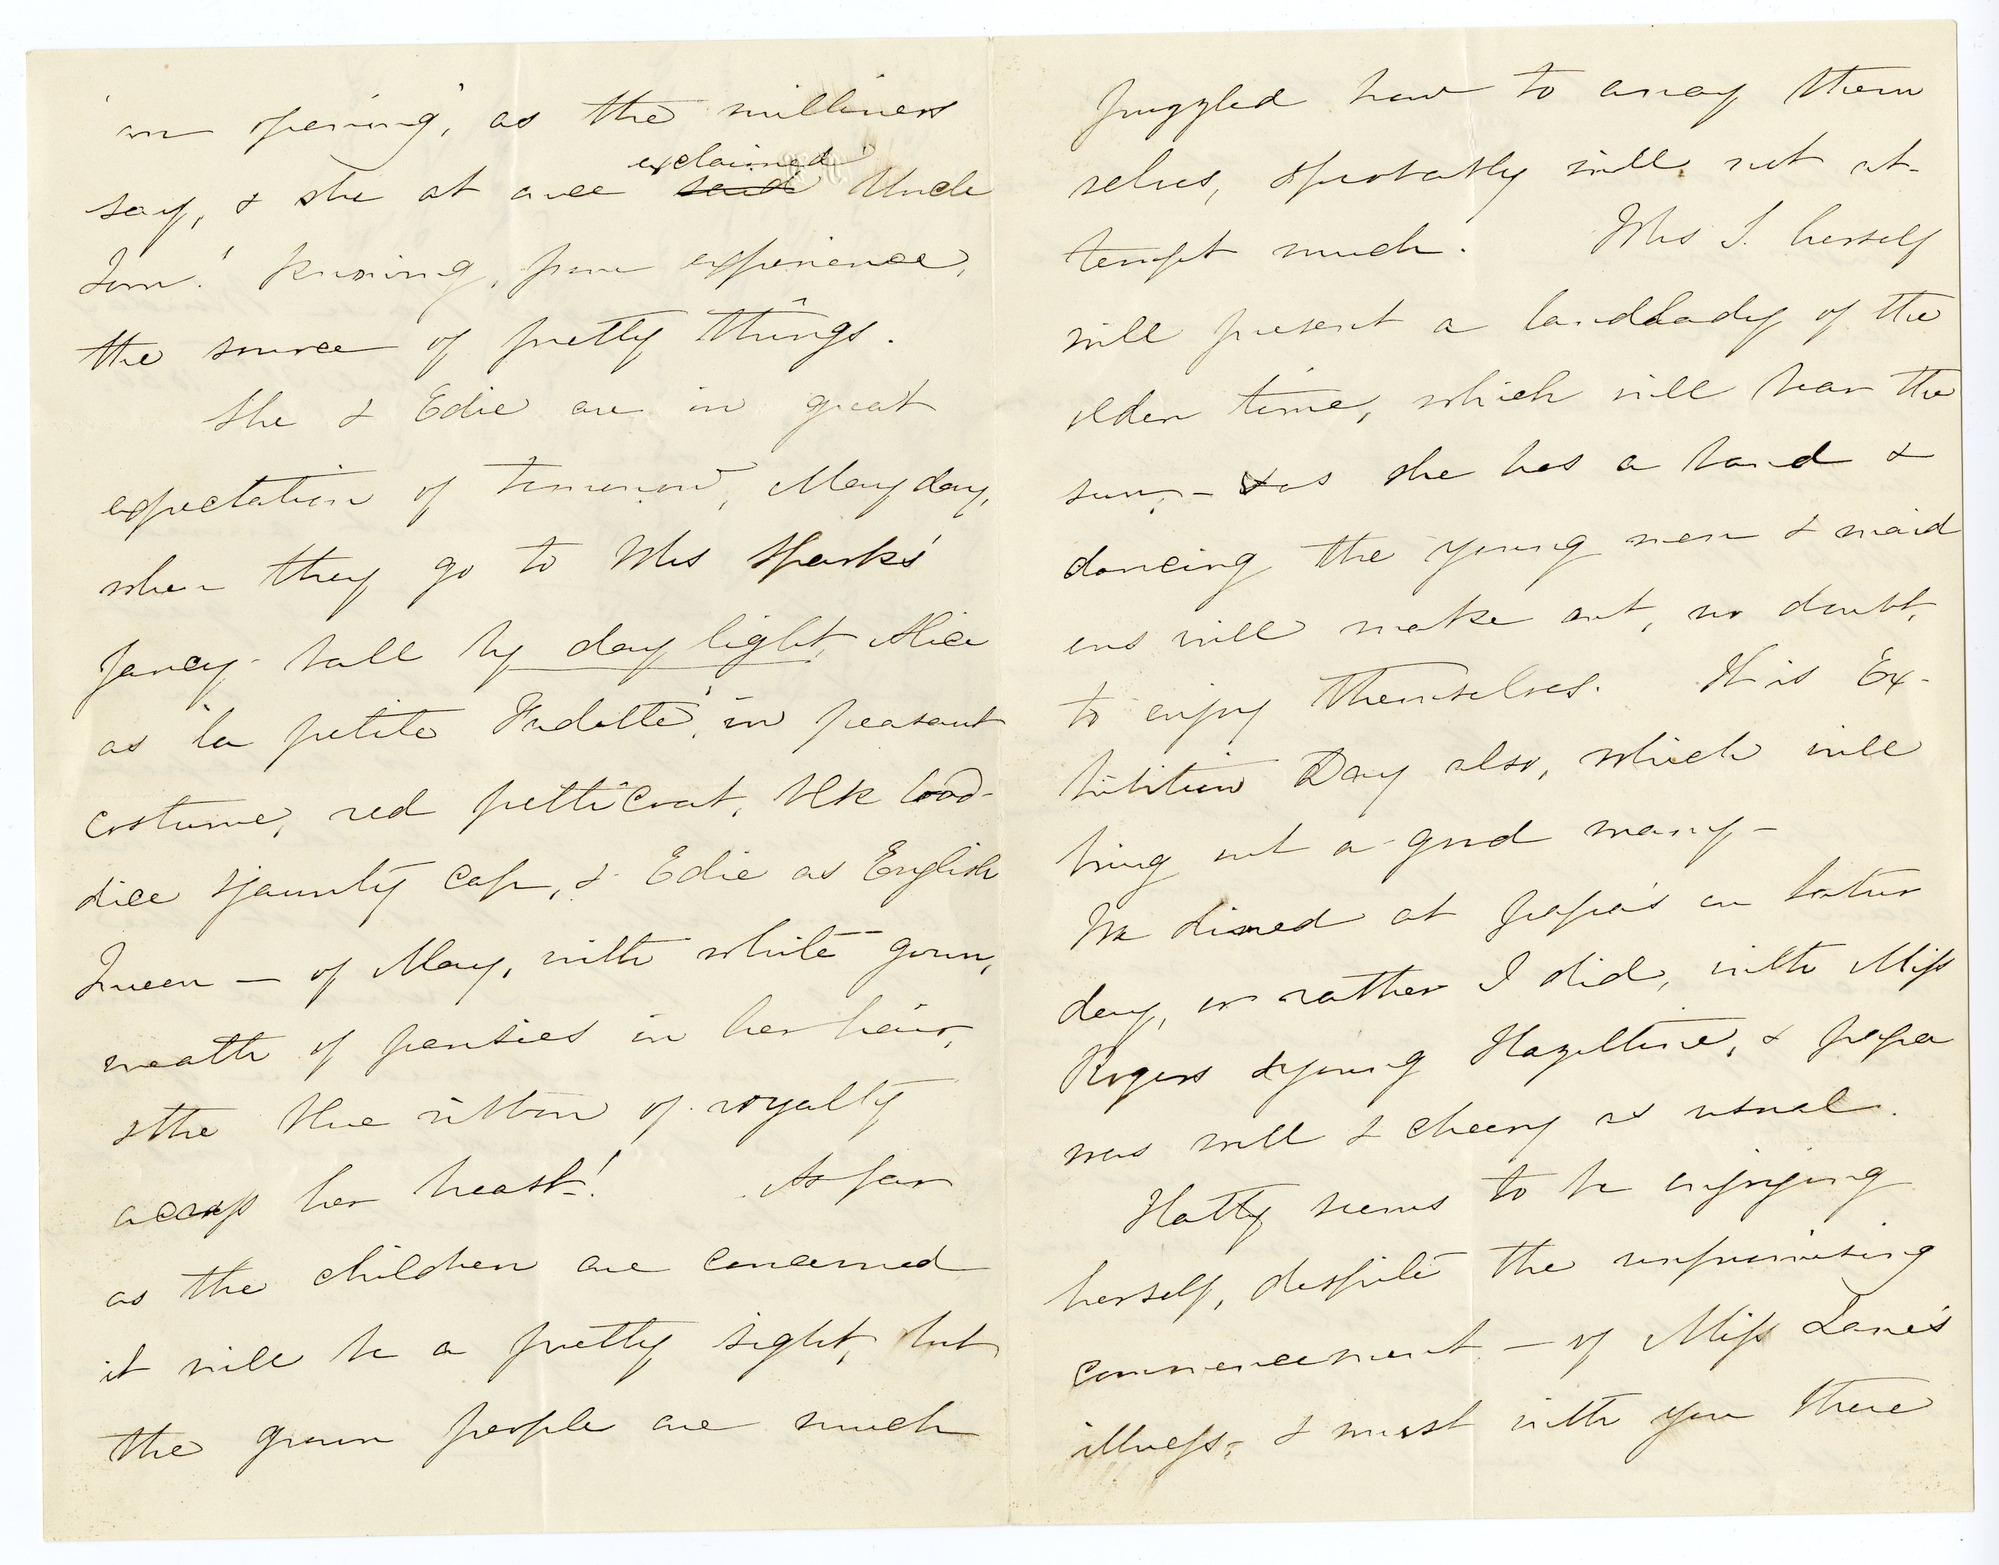 'an opening', as the milliners
say, & she at once exclaimed said 'Uncle
Tom'! knowing, from experience,
the source of pretty things.
She & Edie are in great
expectation of tomorrow, May day,
when they go to Mrs Sparks'
fancy-ball by day light, Alice
as 'la petite Fadette', in peasant
costume, red petticoat, blk bod-
dice & jaunty cap, & Edie as English
Queen — of May, with white gown,
wreath of pansies in her hair,
& the blue ribbon of royalty
across her breast! As far
as the children are concerned
it will be a pretty sight, but
the grown people are much
puzzled how to array them
selves, & probably will not at-
tempt much. Mrs S. herself
will present a landlady of the
olden time, which will bear the
sun, — & as she has a band &
dancing the young men & maid
ens will make out, no doubt,
to enjoy themselves. It is Ex-
hibition Day also, which will
bring out a good many —
We dined at papa's on Satur
day, or rather I did, with Miss
Rogers & young Hazeltine, & papa
was well & cheery as usual.
Hatty seems to be enjoying
herself, despite the unpromising
commencement — of Miss Lane's
illness, & must with you there